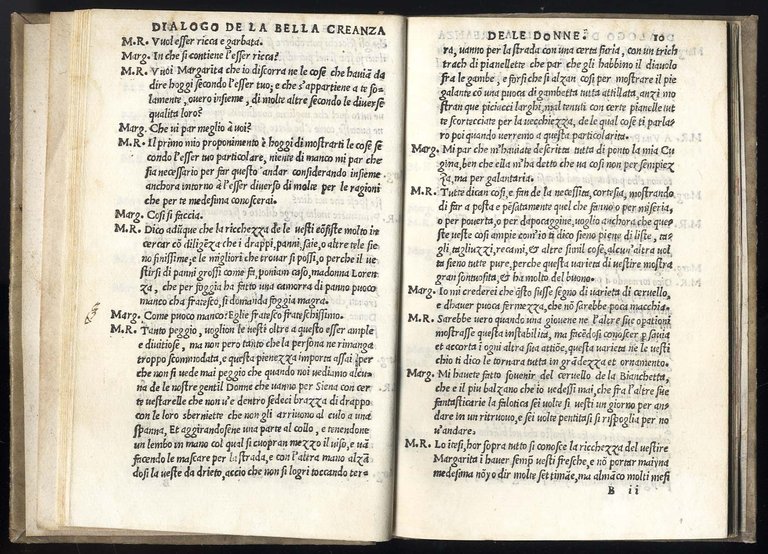 DIALOGO DE LA BELLA CREANZA
M.R. Vuol esser ricca e garbata.
Marg. In che si contiene l'esser ricca?
M.R. Vuoi Margarita che io discorra ne le cose che haviam da
dire hoggi secondo l'esser tuo; e che s'appartiene a te so-
lamente, overo insieme, di molte altre secondo le diverse
qualita loro?
Marg. Che vi par meglio à voi?
M.R. Il primo mio proponimento è hoggi di mostrarti le cose se
condo l'esser tuo particolare, niente di manco mi par che
sia necessario per far questo andar considerando insieme
anchora intorno à l'esser diverso di molte per le ragioni
che per te medesima conoscerai.
Marg. Cosi si faccia.
M.R. Dico adũque che la ricchezza de le vesti cõsiste molto in
cercar cõ diligẽza che i drappi, panni, saie, o altre tele sie
no finissime, e le migliori che trovar si possi, o perche il ve
stirsi di panni grossi come fa, poniam caso, madonna Loren
za, che per foggia ha fatto una camorra di panno puoco
manco cha fratesco, si domanda foggia magra.
Marg. Come puoco manco? Eglie fratesco frateschissimo.
M.R. Tanto peggio, voglion le vesti oltre a questo esser ample
e divitiose, ma non pero tanto che la persona ne rimanga
troppo scommodata, e questa pienezza importa assai ꝑ per
che non si vede mai peggio che quando noi vediamo alcu-
na de le nostre gentil Donne che vanno per Siena con cer
te vestarelle che non v'e dentro sedeci brazza di drappo
con le loro sberniette che non gli arrivono al culo a una
spanna, Et aggirandosene una parte al collo, e tenendone
un lembo in mano col qual si cuopran mezzo il viso, e và
facendo le mascare per la strada, e con l'altra mano alzã
dosi la veste da drieto, accio che non si logri toccando ter-
DE LE DONNE. 10
ra, vanno per la strada con una certa fieria, con un trich
trach di pianellette che par che gli habbino il diavolo
fra le gambe, e forsi che si alzan cosi per mostrare il pie
galante cõ una puoca di gambetta tutta attillata, anzi mo
stran que piciacci larghi, mal tenuti con certe pianelle tut
te scortecciate per la vecchiezza, de le qual cose ti parla-
ro poi quando verremo a questa particolarita.
Marg. Mi par che m'haviate descritta tutta di ponto la mia Cu
gina, ben che ella m'ha detto che va cosi non per sempiez
za, ma per galantaria.
M.R. Tutte dican cosi, e fan de la necessita, cortesia, mostrando
di far a posta e pesatamente quel che fanno o per miseria,
o per poverta, o per dapocaggine, voglio anchora che que-
ste veste cosi ampie com'io ti dico sieno piene di liste, ta-
gli, tagliuzzi, recami, & altre simil cose, alcun'altra vol
ta sieno tutte pure, perche questa varieta di vestire mostra
gran sontuosita, & ha molto del buono.
Marg. Io mi crederei che q̃sto fusse segno di varieta di cervello,
e d'haver puoca fermezza, che nõ sarebbe poca macchia.
M.R. Sarebbe vero quando una giovene ne l'altre sue opationi
mostrasse questa instabilità, ma facẽdosi conoscer ꝑ savia
et accorta i ogni altra sua attiõe, questa varieta ne le vesti
ch'io ti dico le tornara tutta in grãdezza et ornamento.
Marg. Mi havete fatto sovenir del cervello de la Bianchetta,
che e il piu balzano che io vedessi mai, che fra l'altre sue
fantasticarie la falotica sei volte si vesti un giorno per an-
dare in un ritruovo, e sei volte pentitasi si rispoglia per no
v'andare.
M.R. Lo itesi, hor sopra tutto si conosce la ricchezza del vestire
Margarita i haver semꝑ vesti fresche, e nõ portar mai una
medesma nõ vo dir molte settimãe, ma almãco molti mesi
B ii